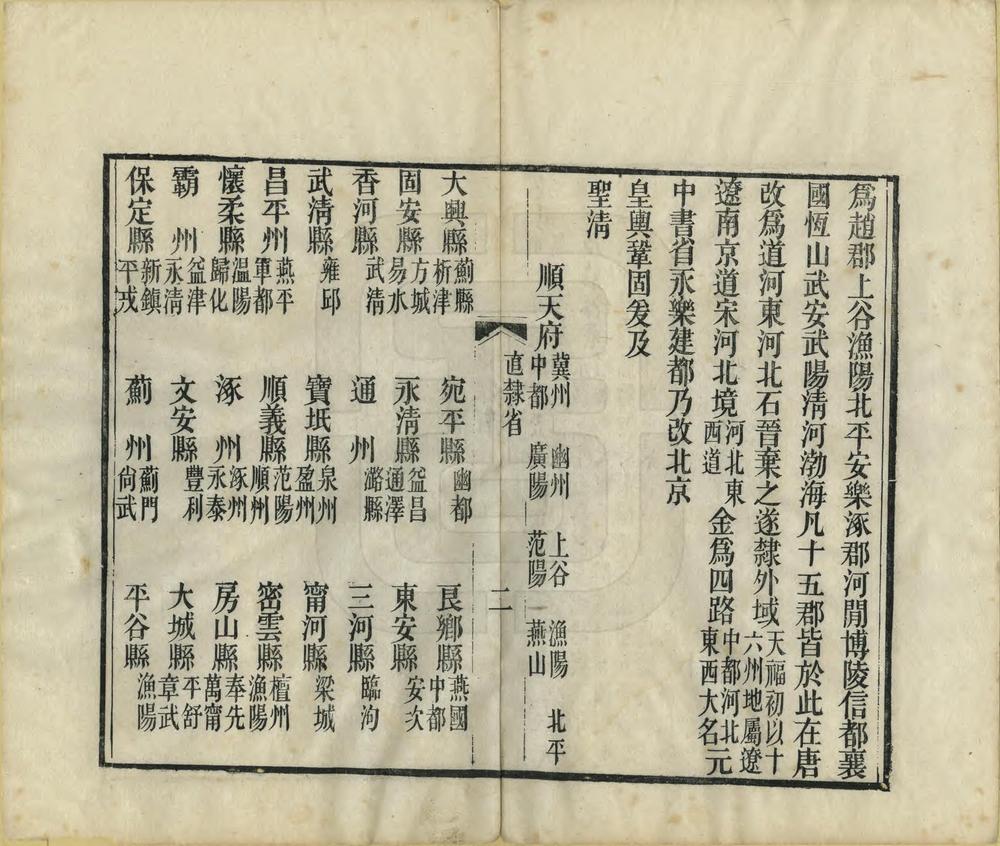 爲趙郡上谷漁陽北平安樂涿郡河間博陵信都襄
國恆山武安武陽清河渤海凡十五郡皆於此在唐
改爲道河東河北石晉棄之遂隸外域天福初以十六州地屬遼
遼南京道宋河北境河北東西道金爲四路中都河北東西大名元
中書省永樂建都乃改北京
皇輿鞏固爰及
聖清
順天府冀州 幽州 上谷 漁陽 北平
中都 廣陽 范陽 燕山
直隸省
二
大興縣薊縣析津 宛平縣幽都 良鄉縣燕國中都
固安縣方城易水 永清縣益昌通澤 東安縣安次
香河縣武清 通州潞縣 三河縣臨泃
武清縣雍邱 寶坻縣泉州盈州 甯河縣梁城
昌平州燕平軍都 順義縣范陽順州 密雲縣檀州漁陽
懷柔縣溫陽歸化 涿州涿州永泰 房山縣奉先萬甯
霸州益津永清 文安縣豐利 大城縣平舒章武
保定縣新鎮平戎 薊州薊門尚武 平谷縣漁陽